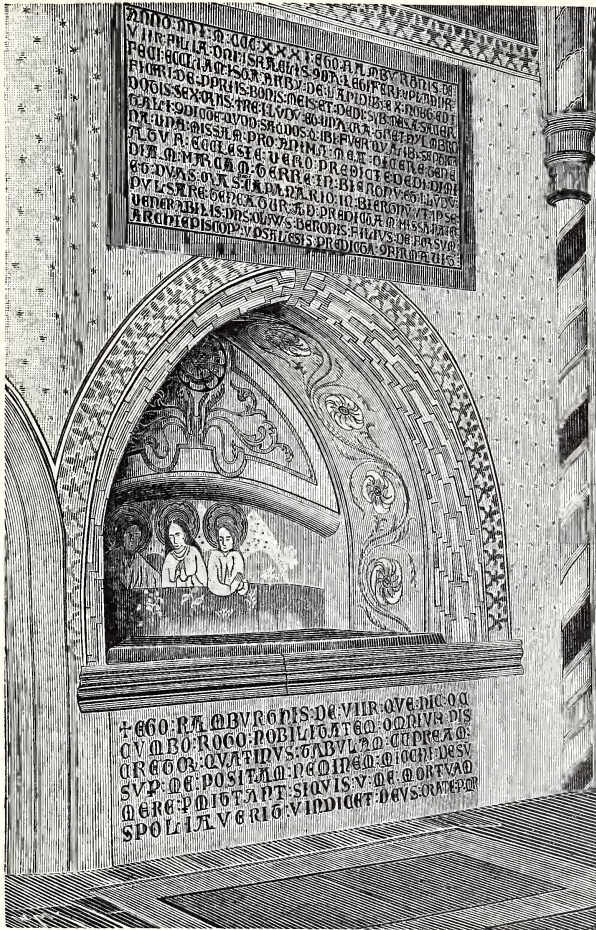 ANNO:DNI:M:CCC:XXXI:EGO:RAMBVRGHIS:DE
VIIR:FILIA:DNI:ISRAELIS:QDA:LEGIFERI:VPLADIAR:
FECI:ECCLIAM:ISTA:ARBY:DE:LAPIDIB:EDI
FICARI:DE:PPRIIS:BONIS:MEIS:ET:DEDI:SACER
DOTIS:ET:VNA
TALI:QDICOE:QVOD:SACDOS:Q:IBI:FVERIT:QVALIB:SEPTIA
NA:VNA:MISSAM:PRO:ANIMA:MEA:DICERE:TENE
ATVR:ECCLESIE:VERO:PREDICTE:DEDI:DIMI
DIAM:MARCAM:TERRE:IN:BIERGNV:ET:LLVDV:
ET:DVAS:ORAS:CAPANARIO:IN:BIERGNV:VT:IPSE
PVLSARE:TENEATVR:AD:PREDICTAM:MISSA:PATER
VENERABILIS:DNS:OLAVS:BERONIS:FILIVS:DE
ARCHIEPISCOP:VPSALESIS:PREDICTA:9FIRMAVIT:
+EGO:RAMBVRGHIS:DE:VIIR:QVE:HIC:OC
CVMBO:ROGO:NOBILITATEM:OMNIVM:HIS
CRETOR:QVATINVS:TABVLAM:CVPREAM:
SVP:ME:POSITAM:NEMINEM:MICCHI:DESV
MERE:PMITTANT:SIQVIS:V:ME:MORTVAM
SPOLIAVERIT:VINDICET:DEVS:ORATE:P:ME